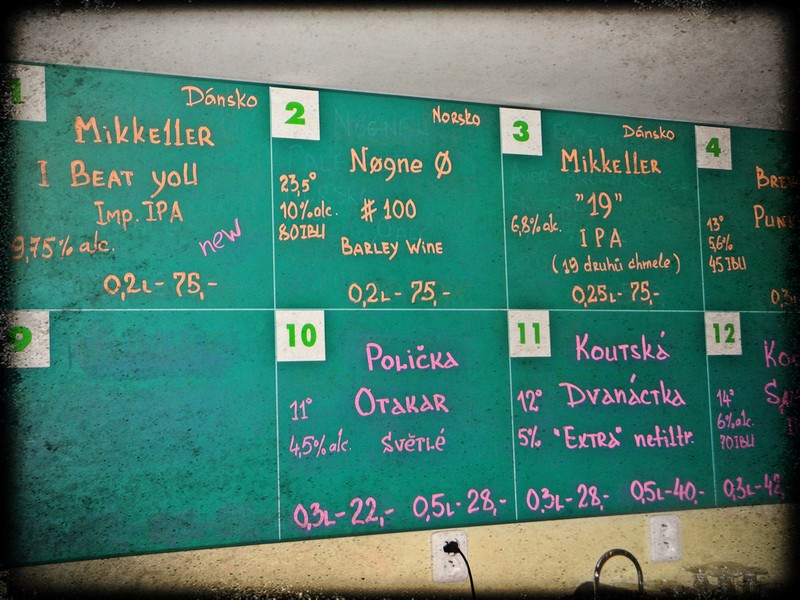 1
Dánsko
Mikkeller
I Beat you
Imp. IPA
9,75% alc.
new
0,2l - 75,-
2
Norsko
Nøgne Ø
23,5°
10% alc.
80IBU
#100
Barley Wine
0,2l - 75,-
3
Dánsko
Mikkeller
"19"
6,8% alc.
IPA
(19 druhů chmele)
0,25l - 75,-
4
13°
5,6%
45 IBU
9
10
Polička
11°
Otakar
4,5% alc.
Světlé
0,3l - 22,- 0,5l - 28,-
11
Koutská
12°
Dvanáctka
5%
"Extra" nefiltr.
0,3l - 28,- 0,5l - 40,-
12
14°
6% alc.
70IBU
0,3l - 42,